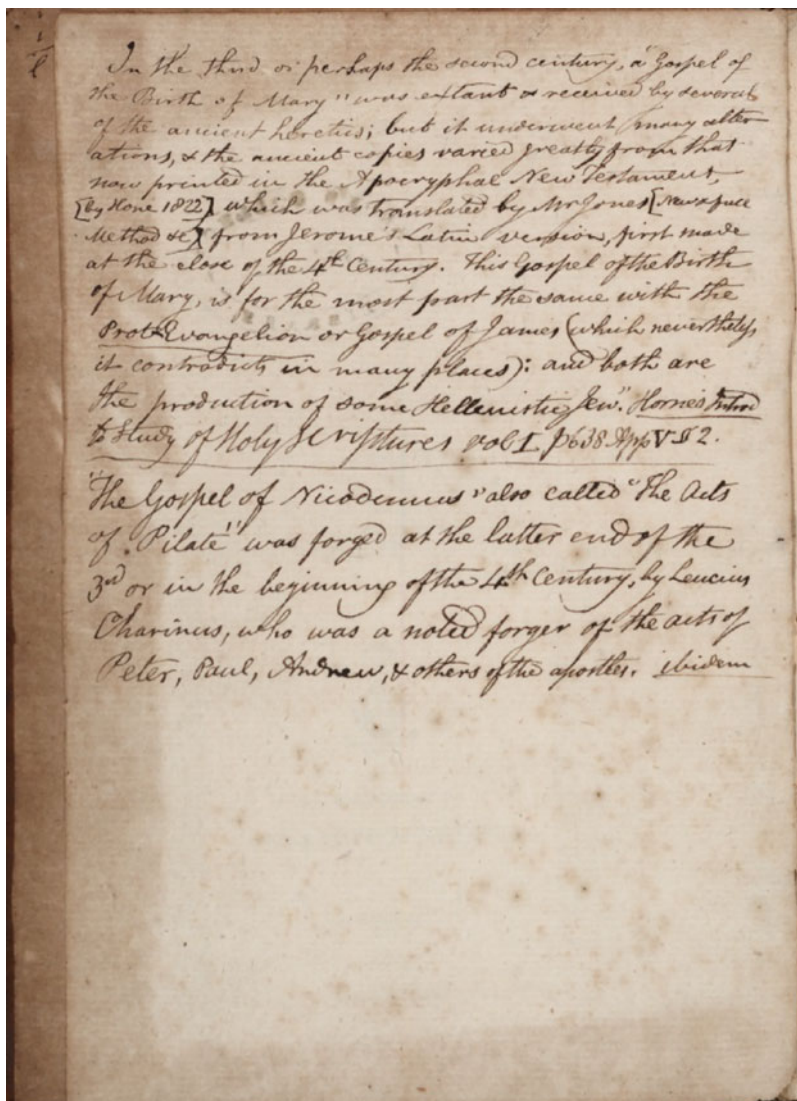 1
l
In the third or perhaps the second century, a "Gospel of
the Birth of Mary" was extant & received by several
of the ancient heretics; but it underwent many alter
ations, & the ancient copies varied greatly from that
now printed in the Apocryphal New Testament,
[by Hone 1822] which was translated by Mr Jones [New & full
Method &c] from Jerome's Latin version, first made
at the close of the 4th Century. This Gospel of the Birth
of Mary, is for the most part the same with the
Prot-Evangelion or Gospel of James (which nevertheless
it contradicts in many places): and both are
the production of some Hellenistic Jew." Horne's Introd
to Study of Holy Scriptures vol I. p 638 App V § 2.
"The Gospel of Nicodemus" also called "The Acts
of Pilate" was forged at the latter end of the
3rd or in the beginning of the 4th Century, by Leucius
Charinus, who was a noted forger of the acts of
Peter, Paul, Andrew, & others of the apostles. ibidem